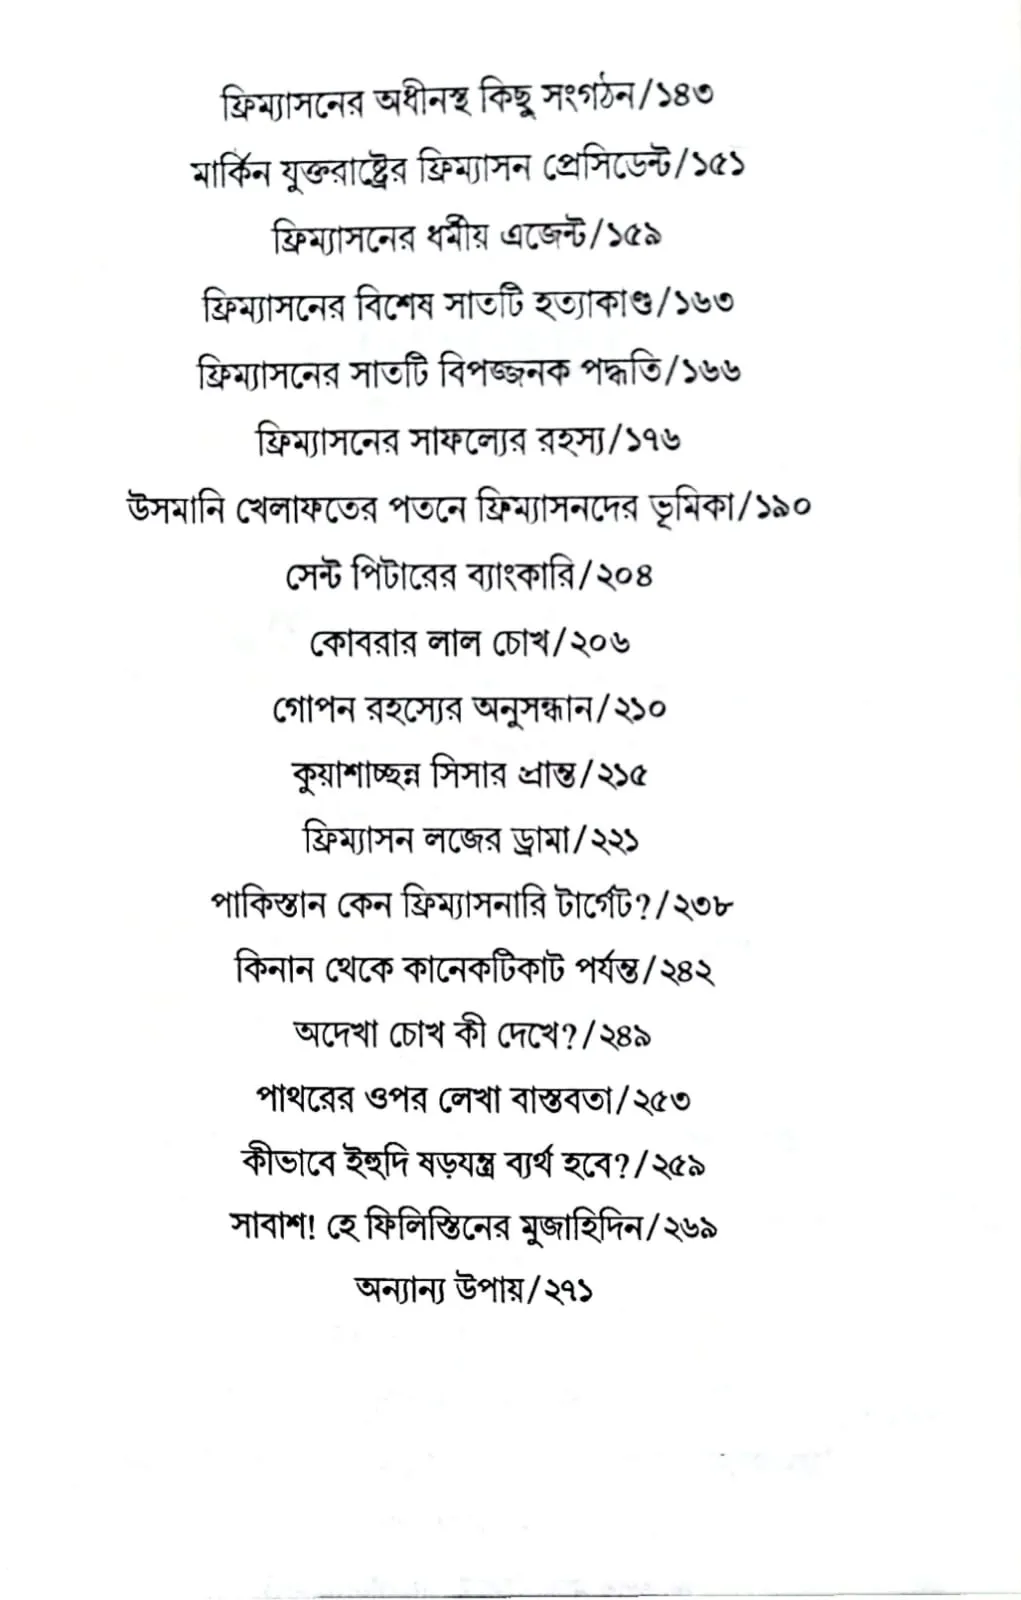 ফ্রিম্যাসনের অধীনস্থ কিছু সংগঠন/১৪৩
মার্কিন যুক্তরাষ্ট্রের ফ্রিম্যাসন প্রেসিডেন্ট/১৫১
ফ্রিম্যাসনের ধর্মীয় এজেন্ট/১৫৯
ফ্রিম্যাসনের বিশেষ সাতটি হত্যাকাণ্ড/১৬৩
ফ্রিম্যাসনের সাতটি বিপজ্জনক পদ্ধতি/১৬৬
ফ্রিম্যাসনের সাফল্যের রহস্য/১৭৬
উসমানি খেলাফতের পতনে ফ্রিম্যাসনদের ভূমিকা/১৯০
সেন্ট পিটারের ব্যাংকারি/২০৪
কোবরার লাল চোখ/২০৬
গোপন রহস্যের অনুসন্ধান/২১০
কুয়াশাচ্ছন্ন সিসার প্রান্ত/২১৫
ফ্রিম্যাসন লজের ড্রামা/২২১
পাকিস্তান কেন ফ্রিম্যাসনারি টার্গেট?/২৩৮
কিনান থেকে কানেকটিকাট পর্যন্ত/২৪২
অদেখা চোখ কী দেখে?/২৪৯
পাথরের ওপর লেখা বাস্তবতা/২৫৩
কীভাবে ইহুদি ষড়যন্ত্র ব্যর্থ হবে?/২৫৯
সাবাশ! হে ফিলিস্তিনের মুজাহিদিন/২৬৯
অন্যান্য উপায়/২৭১